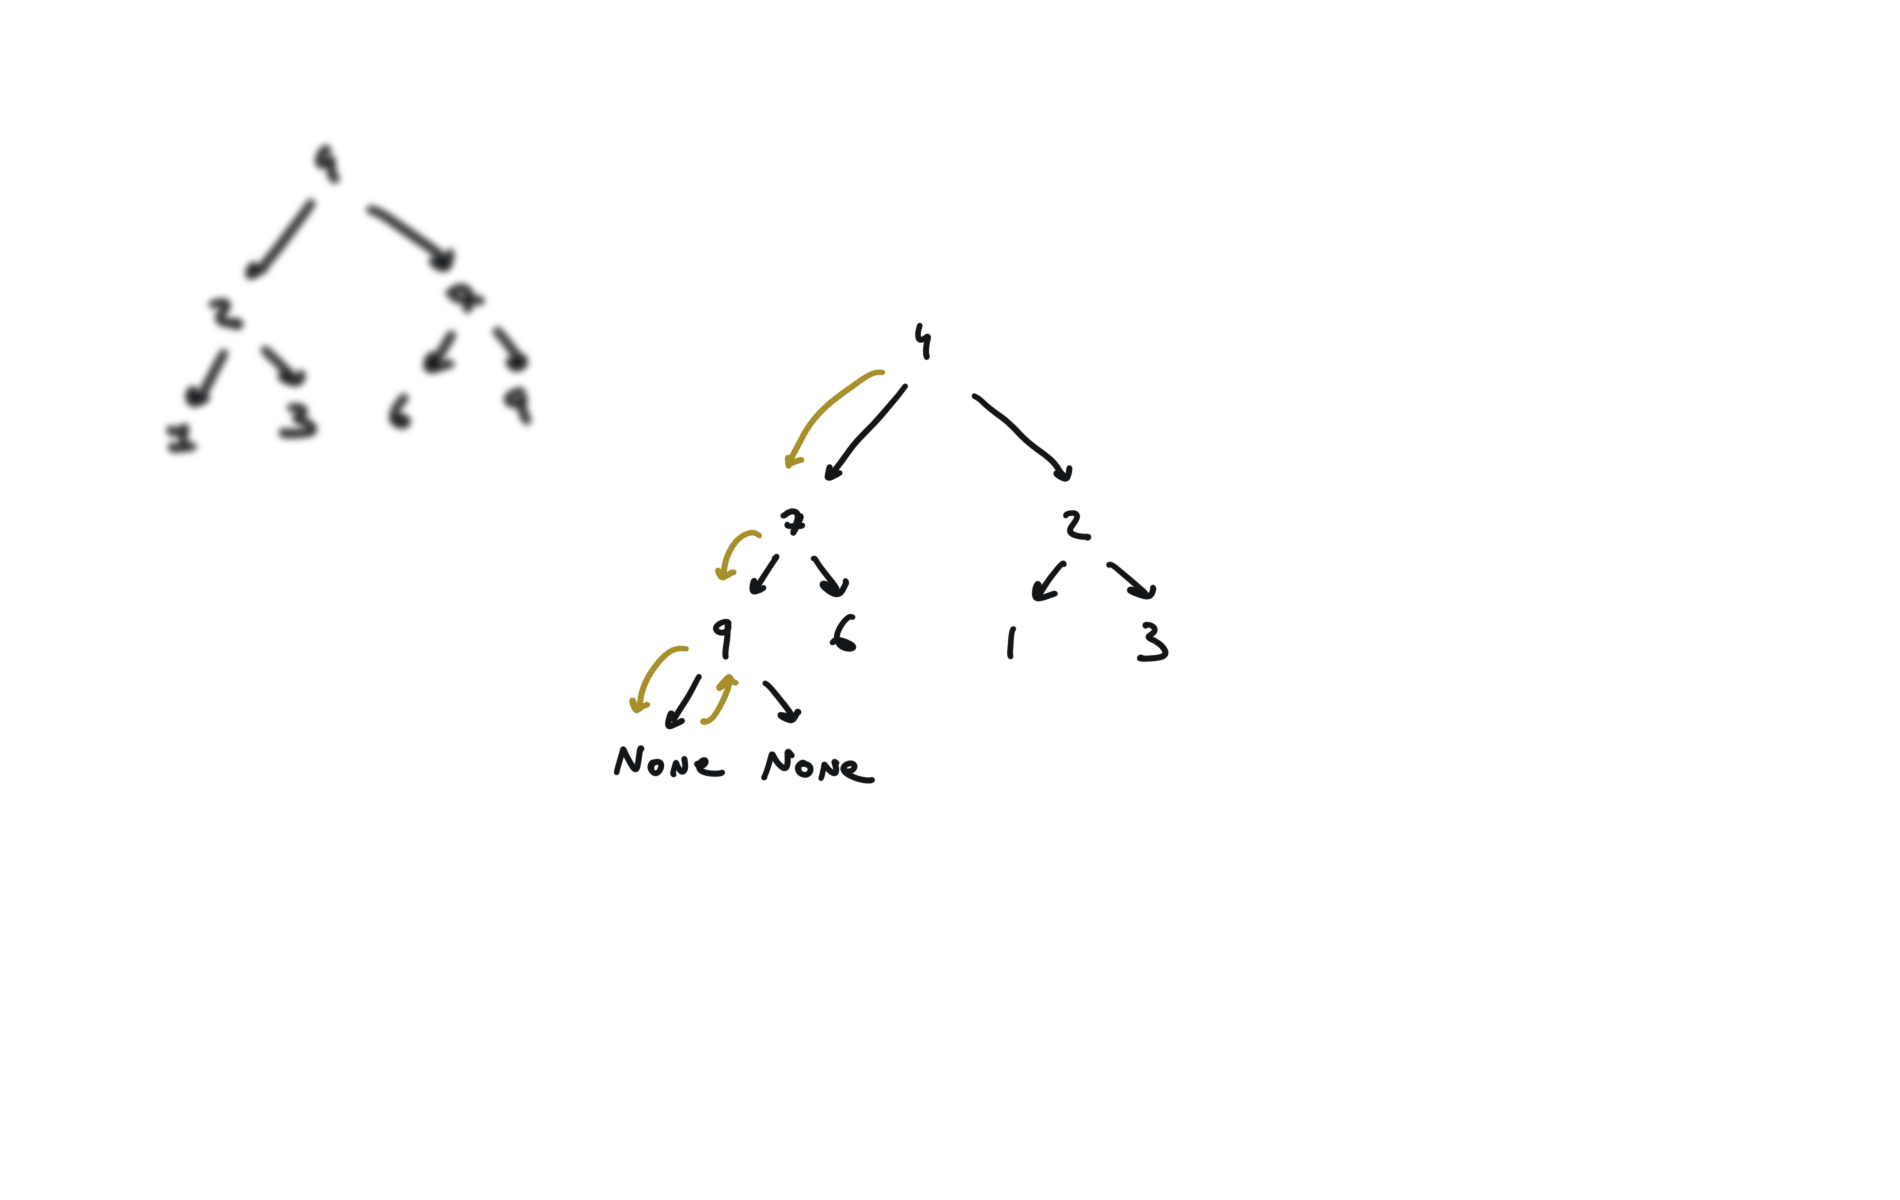 4
2 7
1 3 6 9
4
7 2
9 6 1 3
None None